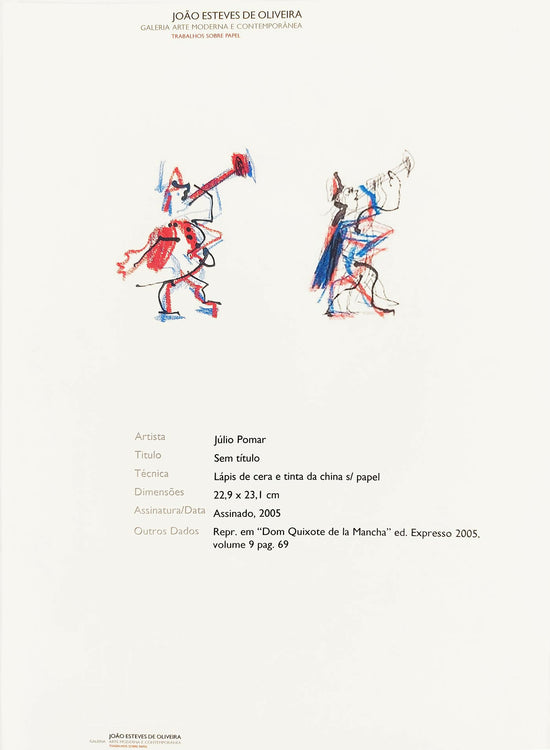 JOÃO ESTEVES DE OLIVEIRA
GALERIA ARTE MODERNA E CONTEMPORÂNEA
TRABALHOS SOBRE PAPEL
Artista Júlio Pomar
Titulo Sem título
Técnica Lápis de cera e tinta da china s/ papel
Dimensões 22,9 x 23,1 cm
Assinatura/Data Assinado, 2005
Outros Dados Repr. em “Dom Quixote de la Mancha” ed. Expresso 2005,
volume 9 pag. 69
JOÃO ESTEVES DE OLIVEIRA
GALERIA ARTE MODERNA E CONTEMPORÂNEA
TRABALHOS SOBRE PAPEL